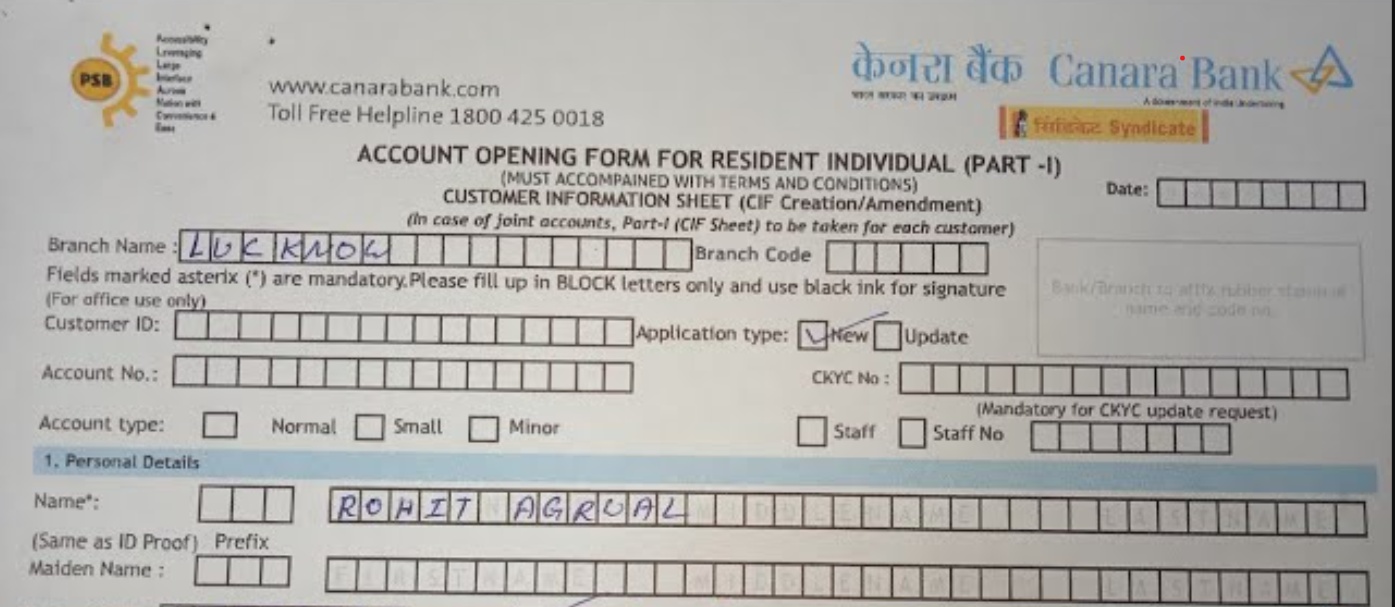 PSB
Accessibility
Leveraging
Large
Interface
Across
Nation with
Convenience &
Ease
www.canarabank.com
Toll Free Helpline 1800 425 0018
केनरा बैंक Canara Bank
A Government of India Undertaking
सिंडिकेट Syndicate
ACCOUNT OPENING FORM FOR RESIDENT INDIVIDUAL (PART -I)
(MUST ACCOMPAINED WITH TERMS AND CONDITIONS)
CUSTOMER INFORMATION SHEET (CIF Creation/Amendment)
(In case of joint accounts, Part-I (CIF Sheet) to be taken for each customer)
Date:
Branch Name : LUCKNOW Branch Code
Fields marked asterix (*) are mandatory.Please fill up in BLOCK letters only and use black ink for signature
Bank/Branch to affix rubber stamp of
name and code no.
(For office use only)
Customer ID: Application type: New Update
Account No.: CKYC No :
(Mandatory for CKYC update request)
Account type: Normal Small Minor Staff Staff No
1. Personal Details
Name*: ROHIT AGRUAL MIDDLENAME LASTNAME
(Same as ID Proof) Prefix
Maiden Name : FIRSTNAME MIDDLENAME LASTNAME